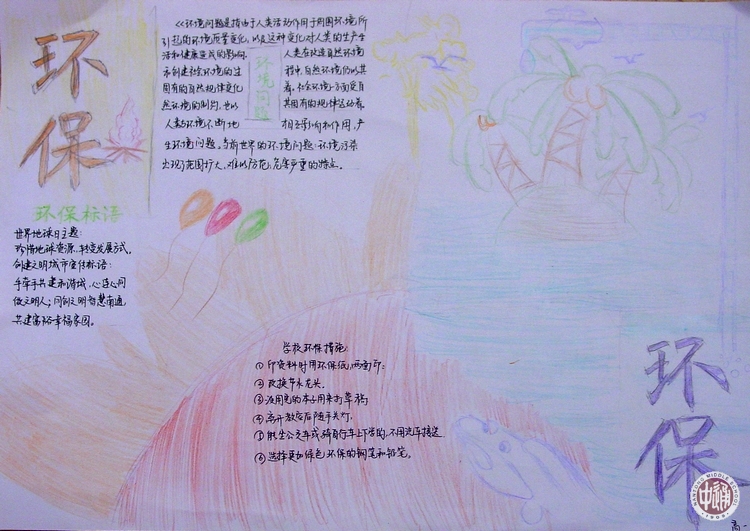 环保
《环境问题是指由于人类活动作用于周围环境所
引起的环境质量变化,以及这种变化对人类的生产生
活和健康造成的影响。人类在改造自然环境
和创建社会环境的过程中,自然环境仍以其
固有的自然规律变化着。社会环境一方面受自
然环境的制约,也以其固有的规律运动着。
人类与环境不断地相互影响和作用,产
生环境问题。当前世界的环境问题:环境污染
出现范围扩大、难以防范、危害严重的特点。
环境问题
环保标语
世界地球日主题:
珍惜地球资源 转变发展方式。
创建文明城市宣传标语:
手牵手共建和谐城,心连心同
做文明人;同创文明智慧南通,
共建富裕幸福家园。
学校环保措施:
①印资料时用环保纸,两面印;
②改换节水龙头。
③没用完的本子用来打草稿;
④离开教室后随手关灯。
⑤能坐公交车或骑自行车上下学的,不用汽车接送
⑥选择更加绿色环保的钢笔和铅笔。
环保
中通
NANTONG MIDDLE SCHOOL
1909
高一